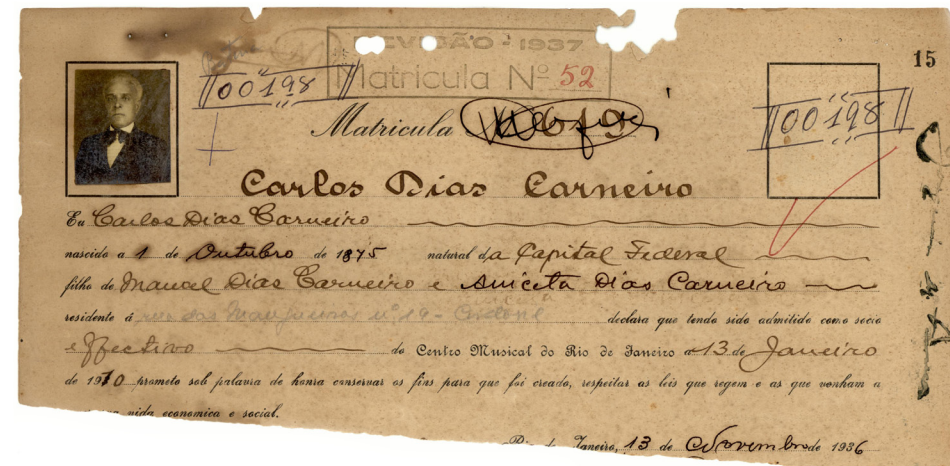 REVISÃO - 1937
15
Matricula Nº 52
00198
00198
Matricula
Carlos Dias Carneiro
Eu Carlos Dias Carneiro
nascido a 1 de Outubro de 1875 natural da Capital Federal
filho de Manoel Dias Carneiro e Aniceta Dias Carneiro
residente á rua das nº 19 - declara que tendo sido admittido como socio
effectivo do Centro Musical do Rio de Janeiro a 13 de Janeiro
de 1910 prometo sob palavra de honra conservar os fins para que foi creado, respeitar as leis que regem e as que venham a
vida economica e social.
Rio de Janeiro, 13 de Novembro de 1936